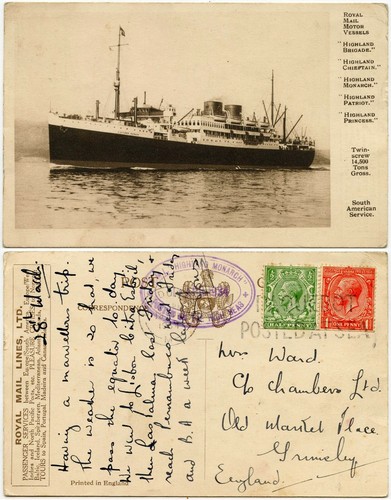 ROYAL
MAIL
MOTOR
VESSELS
"HIGHLAND
BRIGADE."
"HIGHLAND
CHIEFTAIN."
"HIGHLAND
MONARCH."
"HIGHLAND
PATRIOT."
"HIGHLAND
PRINCESS."
Twin-
screw
14,500
Tons
Gross.
South
American
Service.
ROYAL MAIL LINES, LTD.
PASSENGER SERVICES between
TOURS to Spain, Portugal Madeira and
CORRESPONDENCE
Having a marvellous trip.
The weather is so hot we
pass the equator to-day.
We went to Lisbon
then Las Palmas last Friday &
reach Pernambuco
and B.A. week
Ward.
Printed in England
"HIGHLAND MONARCH"
POSTED AT SEA
HALFPENNY
ONE PENNY
Mrs. Ward.
C/o Chambers Ltd.
Old Market Place
Grimsby
England.